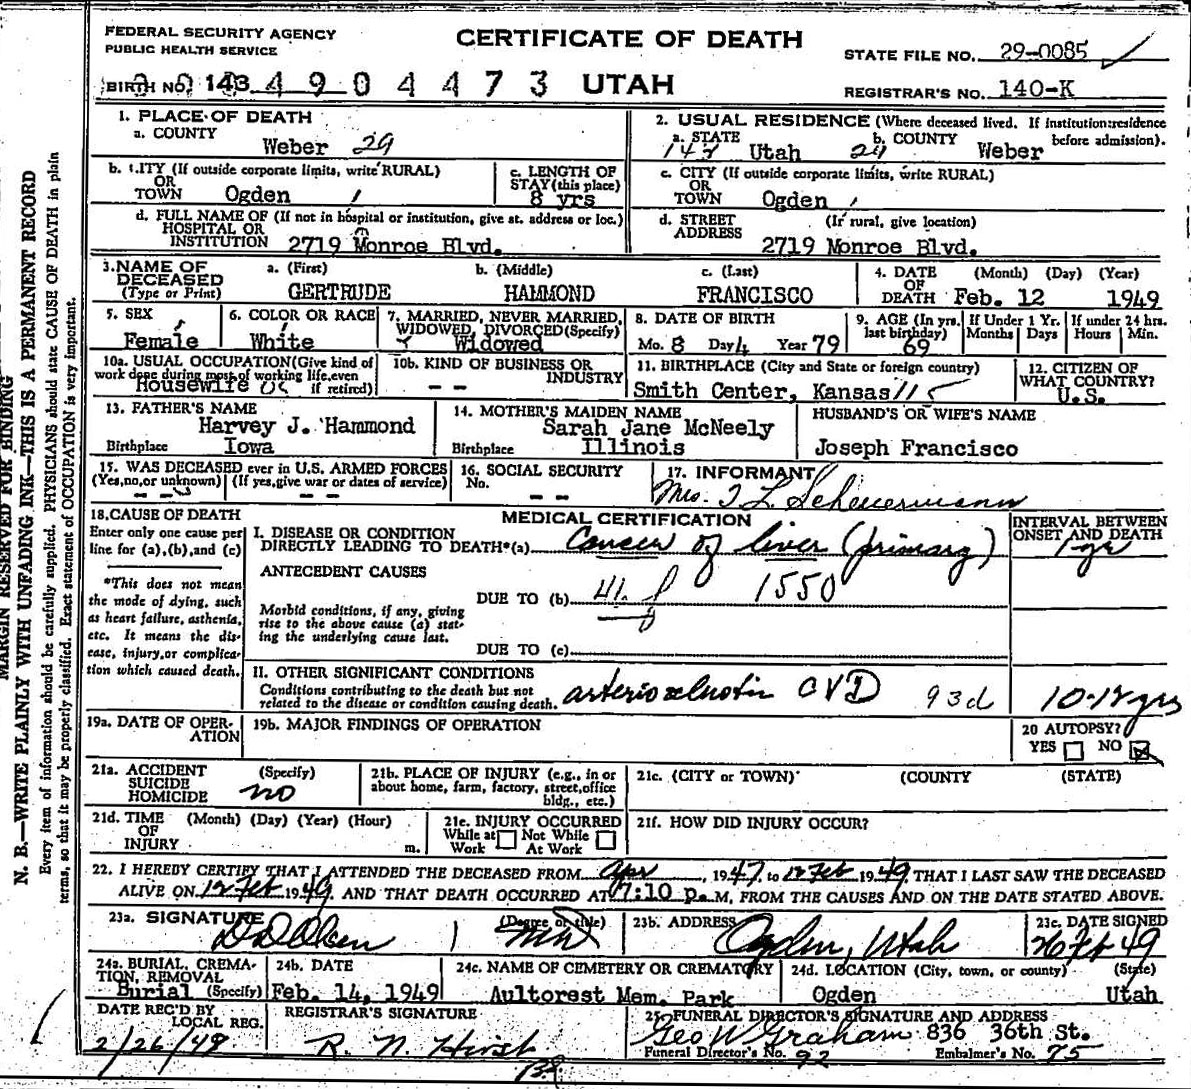 FEDERAL SECURITY AGENCY
PUBLIC HEALTH SERVICE
CERTIFICATE OF DEATH
STATE FILE NO. 29-0085
BIRTH NO. 143 4904473 UTAH
REGISTRAR'S NO. 140-K
MARGIN RESERVED FOR BINDING
N. B.—WRITE PLAINLY WITH UNFADING INK—THIS IS A PERMANENT RECORD
Every item of information should be carefully supplied. PHYSICIANS should state CAUSE OF DEATH in plain
terms, so that it may be properly classified. Exact statement of OCCUPATION is very important.
1. PLACE OF DEATH
a. COUNTY
Weber 29
2. USUAL RESIDENCE (Where deceased lived. If institution:residence
before admission).
a. STATE b. COUNTY
Utah Weber
b. CITY (If outside corporate limits, write RURAL)
OR
TOWN Ogden
c. LENGTH OF
STAY (this place)
8 yrs
c. CITY (If outside corporate limits, write RURAL)
OR
TOWN Ogden
d. FULL NAME OF (If not in hospital or institution, give st. address or loc.)
HOSPITAL OR
INSTITUTION 2719 Monroe Blvd.
d. STREET (If rural, give location)
ADDRESS
2719 Monroe Blvd.
3. NAME OF
DECEASED
(Type or Print)
a. (First) b. (Middle) c. (Last)
GERTRUDE HAMMOND FRANCISCO
4. DATE (Month) (Day) (Year)
OF
DEATH Feb. 12 1949
5. SEX
Female
6. COLOR OR RACE
White
7. MARRIED, NEVER MARRIED,
WIDOWED, DIVORCED (Specify)
Widowed
8. DATE OF BIRTH
Mo. 8 Day 4 Year 79
9. AGE (In yrs. last birthday)
69
If Under 1 Yr.
Months Days
If under 24 hrs.
Hours Min.
10a. USUAL OCCUPATION (Give kind of
work done during most of working life, even
if retired)
Housewife
10b. KIND OF BUSINESS OR
INDUSTRY
--
11. BIRTHPLACE (City and State or foreign country)
Smith Center, Kansas 115
12. CITIZEN OF
WHAT COUNTRY?
U.S.
13. FATHER'S NAME
Harvey J. Hammond
Birthplace Iowa
14. MOTHER'S MAIDEN NAME
Sarah Jane McNeely
Birthplace Illinois
HUSBAND'S OR WIFE'S NAME
Joseph Francisco
15. WAS DECEASED ever in U.S. ARMED FORCES
(Yes, no, or unknown) (If yes, give war or dates of service)
-- --
16. SOCIAL SECURITY
No.
--
17. INFORMANT
Mrs. T L Scheuermann
18. CAUSE OF DEATH
Enter only one cause per
line for (a), (b), and (c)
*This does not mean
the mode of dying, such
as heart failure, asthenia,
etc. It means the dis-
ease, injury, or complica-
tion which caused death.
MEDICAL CERTIFICATION
INTERVAL BETWEEN
ONSET AND DEATH
I. DISEASE OR CONDITION
DIRECTLY LEADING TO DEATH*(a) Cancer of liver (primary) 1 yr
ANTECEDENT CAUSES
DUE TO (b) 1550
Morbid conditions, if any, giving
rise to the above cause (a) stat-
ing the underlying cause last.
DUE TO (c)
II. OTHER SIGNIFICANT CONDITIONS
Conditions contributing to the death but not
related to the disease or condition causing death.
arteriosclerotic CVD 93d 10-12 yrs
19a. DATE OF OPER-
ATION
19b. MAJOR FINDINGS OF OPERATION
20 AUTOPSY?
YES NO
21a. ACCIDENT (Specify)
SUICIDE
HOMICIDE no
21b. PLACE OF INJURY (e.g., in or
about home, farm, factory, street, office
bldg., etc.)
21c. (CITY or TOWN) (COUNTY (STATE)
21d. TIME (Month) (Day) (Year) (Hour)
OF
INJURY m.
21e. INJURY OCCURRED
While at Not While
Work At Work
21f. HOW DID INJURY OCCUR?
22. I HEREBY CERTIFY THAT I ATTENDED THE DECEASED FROM Apr, 1947, to 12 Feb 1949, THAT I LAST SAW THE DECEASED
ALIVE ON 12 Feb 1949, AND THAT DEATH OCCURRED AT 7:10 p. M, FROM THE CAUSES AND ON THE DATE STATED ABOVE.
23a. SIGNATURE (Degree or title)
Olsen MD
23b. ADDRESS
Ogden, Utah
23c. DATE SIGNED
26 Feb 49
24a. BURIAL, CREMA-
TION, REMOVAL
Burial (Specify)
24b. DATE
Feb. 14, 1949
24c. NAME OF CEMETERY OR CREMATORY
Aultorest Mem. Park
24d. LOCATION (City, town, or county) (State)
Ogden Utah
DATE REC'D BY
LOCAL REG.
2/26/49
REGISTRAR'S SIGNATURE
R. N. Hirst
25. FUNERAL DIRECTOR'S SIGNATURE AND ADDRESS
Geo W Graham 836 36th St.
Funeral Director's No. 92 Embalmer's No. 75